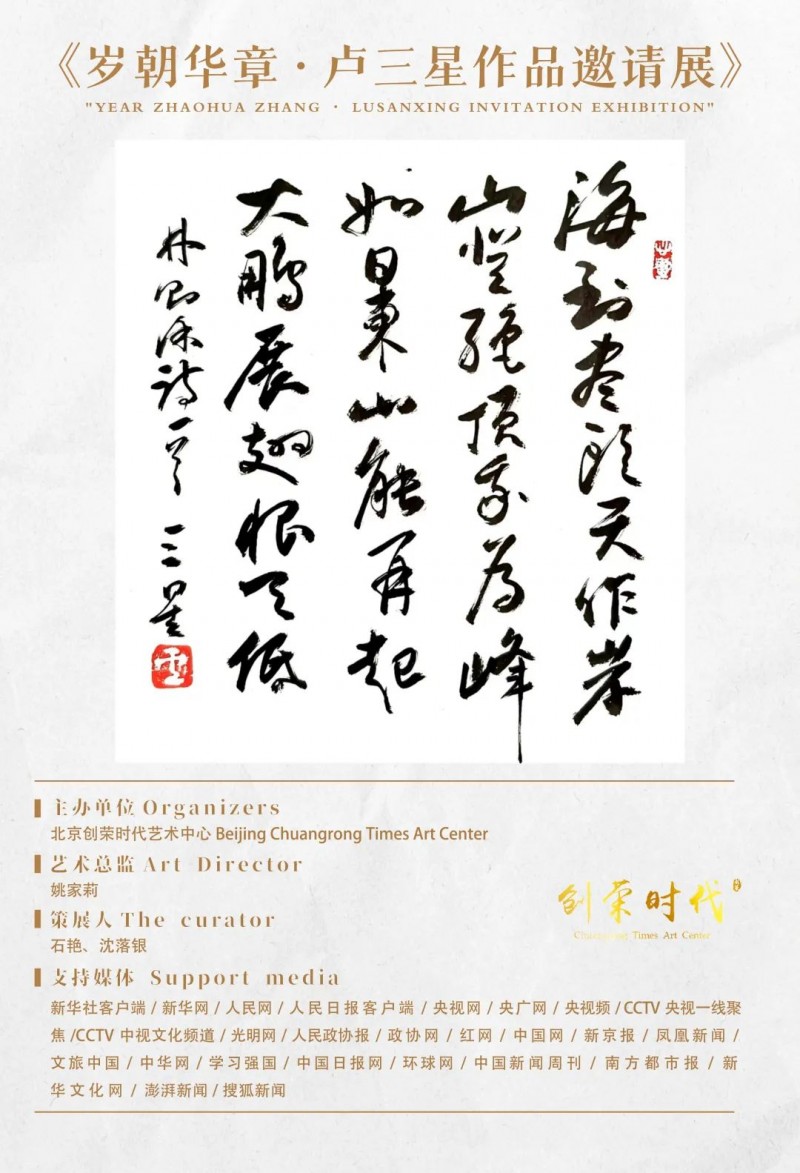 《岁朝华章·卢三星作品邀请展》
"YEAR ZHAOHUA ZHANG · LUSANXING INVITATION EXHIBITION"
海到尽头天作岸
山登绝顶我为峰
如日东山能再起
大鹏展翅恨天低
林则徐诗一首 三星
主办单位 Organizers
北京创荣时代艺术中心 Beijing Chuangrong Times Art Center
艺术总监 Art Director
姚家莉
策展人 The curator
石艳、沈落银
创荣时代
Chuangrong Times Art Center
支持媒体 Support media
新华社客户端 / 新华网 / 人民网 / 人民日报客户端 / 央视网 / 央广网 / 央视频 / CCTV 央视一线聚
焦 /CCTV 中视文化频道 / 光明网 / 人民政协报 / 政协网 / 红网 / 中国网 / 新京报 / 凤凰新闻 /
文旅中国 / 中华网 / 学习强国 / 中国日报网 / 环球网 / 中国新闻周刊 / 南方都市报 / 新
华文化网 / 澎湃新闻 / 搜狐新闻